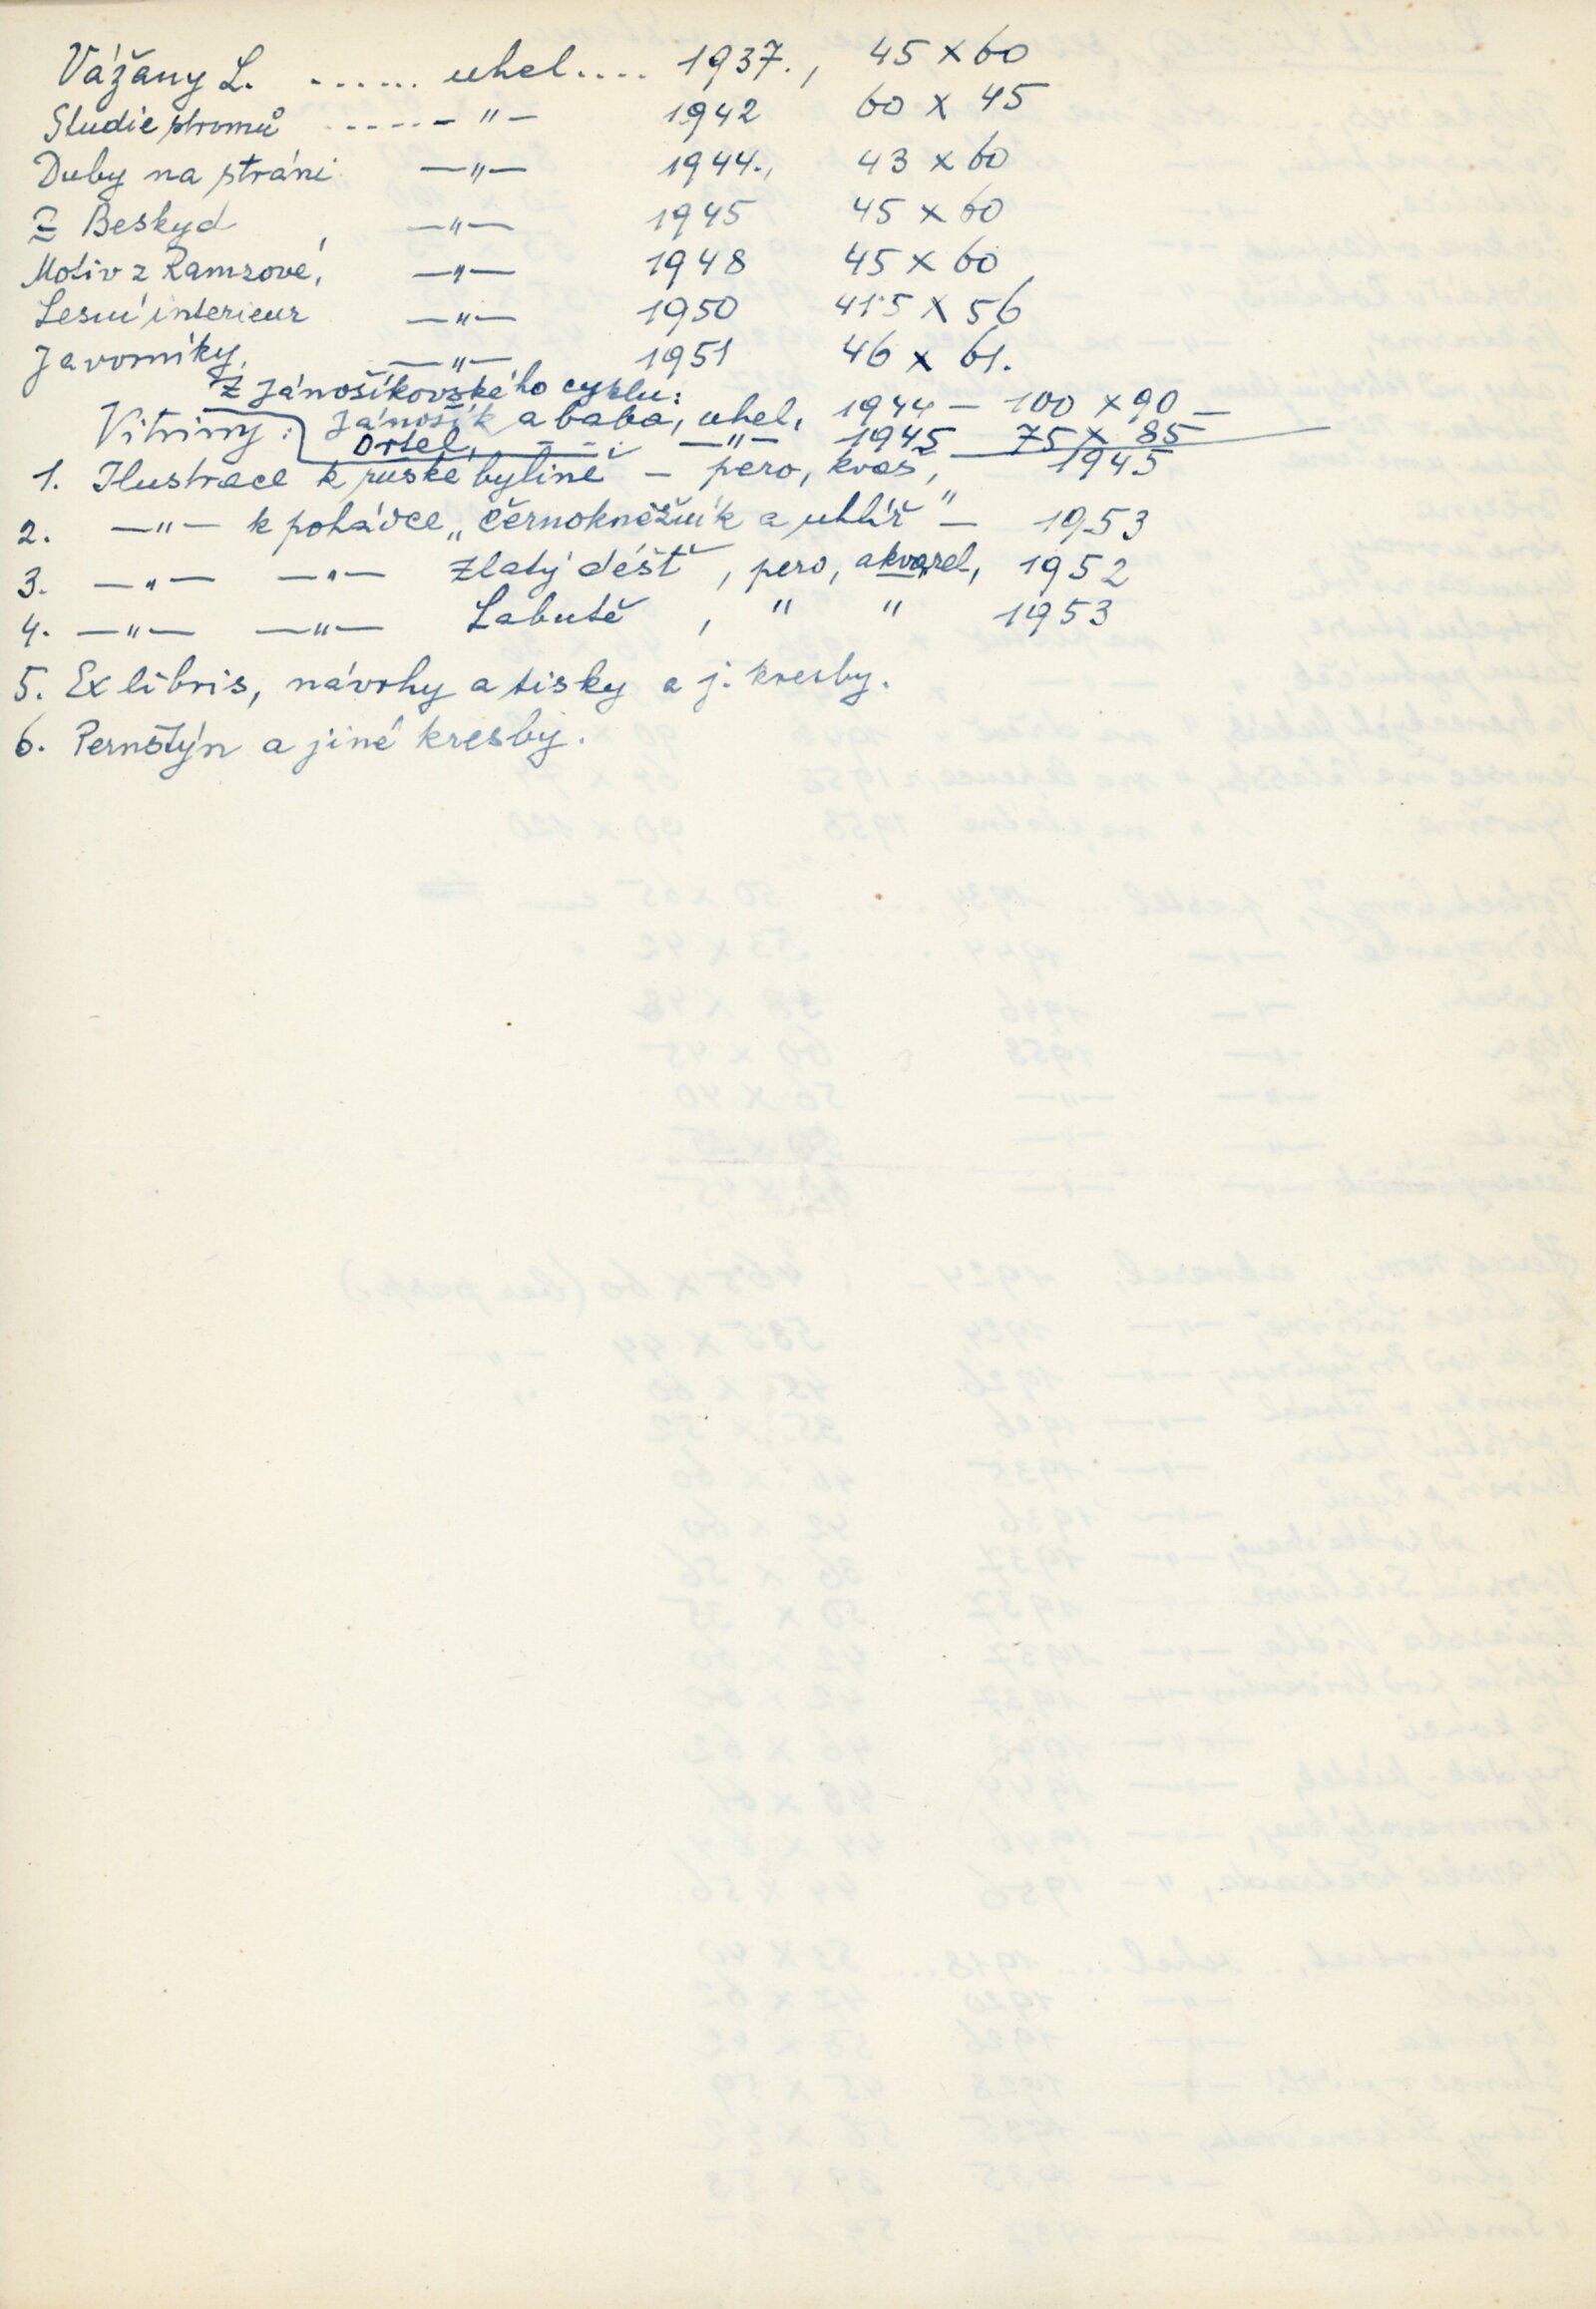 Vážany L. ...... uhel.... 1937., 45 x 60
Studie stromů ----- — " — 1942 60 x 45
Duby na stráni — " — 1944., 43 x 60
Z Beskyd, — " — 1945 45 x 60
Motiv z Ramzové, — " — 1948 45 x 60
Lesní interieur — " — 1950 41'5 x 56
Javorníky, — " — 1951 46 x 61.
Z Jánošíkovského cyklu:
Vitriny: Jánošík a baba, uhel, 1944 — 100 x 90 —
Ortel, — — — " — 1945 75 x 85
1. Ilustrace k ruské bylině — pero, kvaš, 1945
2. — " — k pohádce „černokněžník a uhlíř" — 1953
3. — " — — " — Zlatý déšť, pero, akvarel, 1952
4. — " — — " — Labutě, " " 1953
5. Ex libris, návrhy a tisky a j. kresby.
6. Pernštýn a jiné kresby.